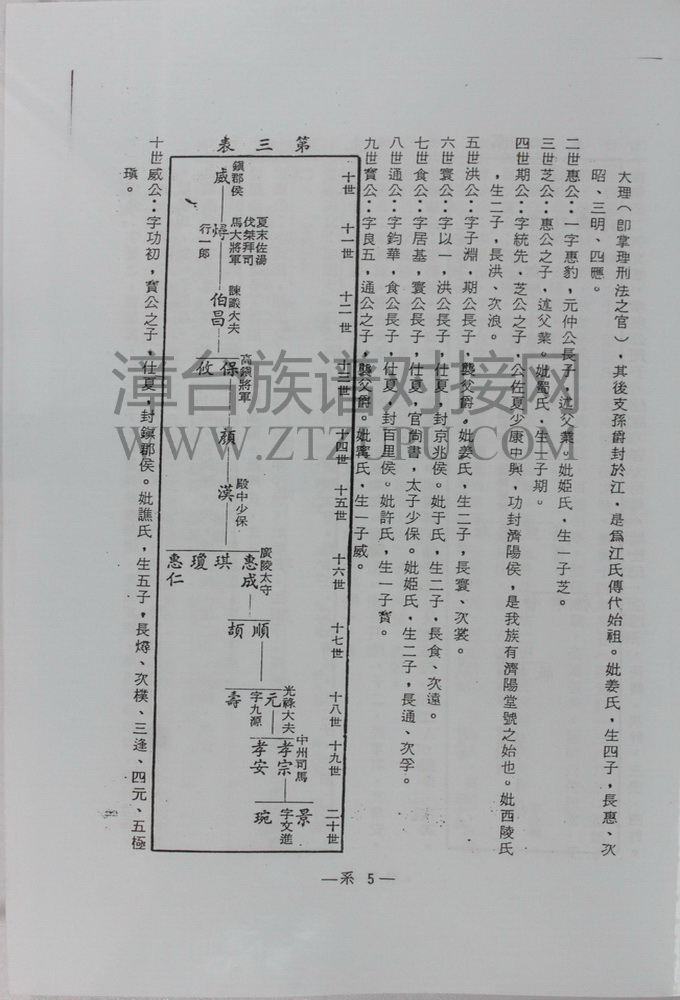 大理(即掌理刑法之官),其後支孫爵封於江,是爲江氏傳代始祖。妣姜氏,生四子,長惠、次
昭、三明、四應。
二世惠公:一字惠豹,元仲公長子,述父業。妣姬氏,生一子芝。
三世芝公:惠公之子,述父業。妣羅氏,生一子期。
四世期公:字統先,芝公之子,公佐夏少康中興,功封濟陽侯,是我族有濟陽堂號之始也。妣西陵氏
,生二子,長洪、次浪。
五世洪公:字子淵,期公長子,襲父爵。妣姜氏,生二子,長寰、次裳。
六世寰公:字以一,洪公長子,仕夏,封京兆侯。妣于氏,生二子,長食、次遠。
七世食公:字居基,寰公長子,仕夏,官尚書,太子少保。妣姬氏,生二子,長通、次孚。
八世通公:字鈞華,食公長子,仕夏,封百里侯。妣許氏,生一子寶。
九世寶公:字良五,通公之子,襲父爵。妣寗氏,生一子威。
第三表
十世
十一世
十二世
十三世
十四世
十五世
十六世
十七世
十八世
十九世
二十世
鎮郡侯
威
夏末佐湯
伐桀拜司
馬大將軍
燖
行一郎
諫議大夫
伯昌
高鎮將軍
保
攸
顏
殿中少保
漢
廣陵太守
惠成
琪
瓊
惠仁
順
頡
光祿大夫
元
字九源
壽
中州司馬
孝宗
孝安
景
字文進
琬
十世威公:字功初,寶公之子,仕夏,封鎮郡侯。妣譙氏,生五子,長燖、次樸、三逢、四元、五極
瑱。
—系 5—
漳台族谱对接网
WWW.ZTZUPU.COM